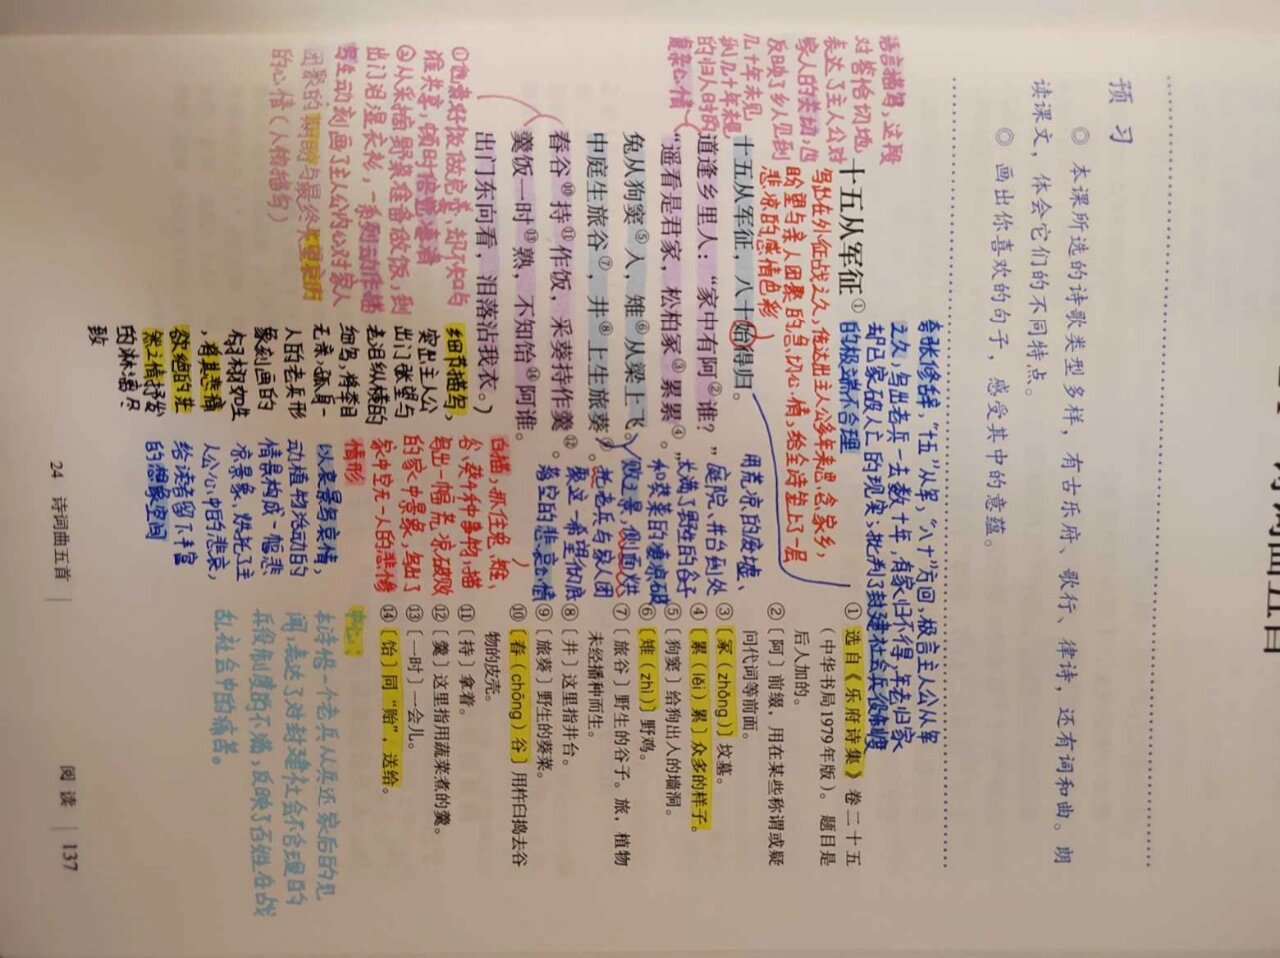 预 习
◎ 本课所选的诗歌类型多样，有古乐府、歌行、律诗，还有词和曲。朗
读课文，体会它们的不同特点。
◎ 画出你喜欢的句子，感受其中的意蕴。
语言描写，这段
对答恰切地
表达了主人公对
反映了乡人见到
几十年未见
的归人时的
复杂心情
夸张修辞，“十五”从军，“八十”方回，极言主人公从军
之久，写出老兵一去数十年，有家归不得，年老归家
却已家破人亡的现实，批判了封建社会兵役制度
的极端不合理
十五从军征①
写出在外征战之久，传达出主人公多年来思念家乡，
盼望与亲人团聚的急切心情，给全诗垫上了一层
悲凉的感情色彩
十五从军征，八十始得归。
道逢乡里人：“家中有阿②谁？”
“遥看是君家，松柏冢③累累④。”
兔从狗窦⑤入，雉⑥从梁上飞。
中庭生旅谷⑦，井⑧上生旅葵⑨。
舂谷⑩持⑪作饭，采葵持作羹⑫。
羹饭一时⑬熟，不知饴⑭阿谁。
出门东向看，泪落沾我衣。
用荒凉的废墟、
庭院、井台到处
长满了野生的谷子
和葵菜的凄凉破
败之景，侧面烘
托老兵与家人团
聚这一希望彻底
落空的悲哀之情
白描，抓住兔、雉、
谷、葵4种事物，描
绘出一幅荒凉破败
的家中景象，写出了
家中空无一人的悲惨
情形
以哀景写哀情，
动植物活动的
情景构成一幅悲
凉景象，烘托了主
人公心中的悲哀，
给读者留下丰富
的想象空间
②从采葵准备做饭，到
出门泪湿衣衫，一系列动作描
写生动刻画了主人公内心对家人
团聚的期盼与最终失望哀伤
的心情（人物描写）
细节描写，
突出主人公
出门张望与
老泪纵横的
细节，将举目
无亲、孤身一
人的老兵形
象刻画的
栩栩如生
，将其悲痛
欲绝的茫
然之情抒发
的淋漓尽
致
中心：
本诗借一个老兵从军还家后的见
闻，表达了对封建社会不合理的
兵役制度的不满，反映了百姓在战
乱社会中的痛苦。
① 选自《乐府诗集》卷二十五
（中华书局1979年版）。题目是
后人加的。
②〔阿〕前缀，用在某些称谓或疑
问代词等前面。
③〔冢（zhǒng）〕坟墓。
④〔累（léi）累〕众多的样子。
⑤〔狗窦〕给狗出入的墙洞。
⑥〔雉（zhì）〕野鸡。
⑦〔旅谷〕野生的谷子。旅，植物
未经播种而生。
⑧〔井〕这里指井台。
⑨〔旅葵〕野生的葵菜。
⑩〔舂（chōng）谷〕用杵臼捣去谷
物的皮壳。
⑪〔持〕拿着。
⑫〔羹〕这里指用蔬菜煮的羹。
⑬〔一时〕一会儿。
⑭〔饴〕同“贻”，送给。
24 诗词曲五首
阅 读 137